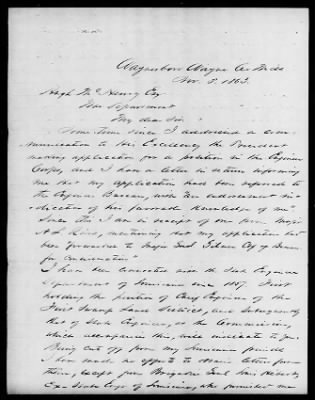 Waynesboro Wayne Co. Miss
Nov. 3. 1863.
Hugh McHenry Esq
War Department
My dear Sir
Some time since I addressed a com-
munication to His Excellency the President
making application for a position in the Engineer
Corps, and I have a letter in return informing
me that my application had been referred to
the Engineer Bureau, with
of his favorable
Since this I am in receipt of one from Major
mentioning that my application had
been forwarded to Major Genl Gilmer Chf of Bureau
for consideration
I have been connected with the State Engineer
Department of Louisiana since 1857. First
holding the position of Chief Engineer of the
First Swamp Land District, and subsequently
that of State Engineer, as the Commission,
which accompanies this, will indicate to you.
Being cut off from my Louisiana friends
I have made no effort to obtain letters from
them, except from Brigadier Genl
Ex-State Engr of Louisiana, who